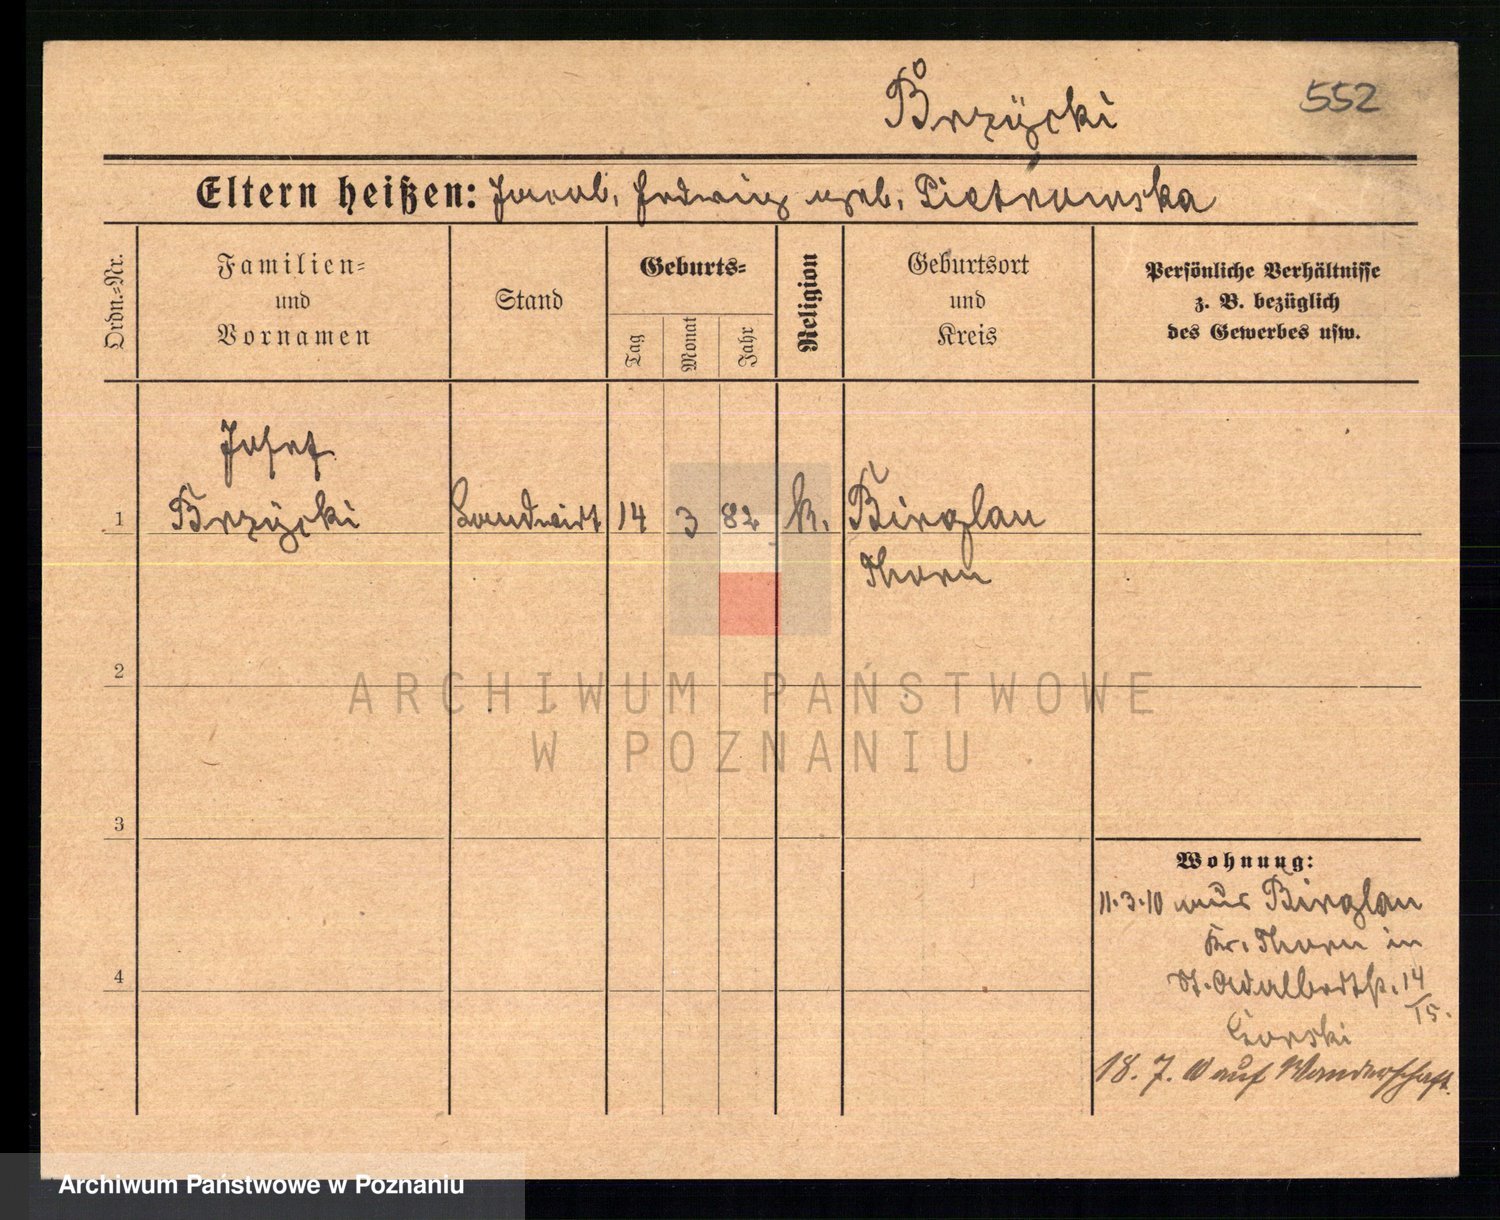 Brzÿcki
552
Eltern heißen: Jacob, Hedwig geb. Pietrowska
Ordn.-Nr.
Familien-
und
Vornamen
Stand
Geburts-
Tag
Monat
Jahr
Religion
Geburtsort
und
Kreis
Persönliche Verhältnisse
z. B. bezüglich
des Gewerbes usw.
Josef
1 Brzÿcki Landwirt 14 3 82 k. Birglau
Thorn
2
ARCHIWUM PAŃSTWOWE
W POZNANIU
3
Wohnung:
11.3.10 aus Birglau
Kr. Thorn in
St. Adalbertstr. 14/15.
4
Gorski
18. 7. 10 auf Wanderschaft.
Archiwum Państwowe w Poznaniu